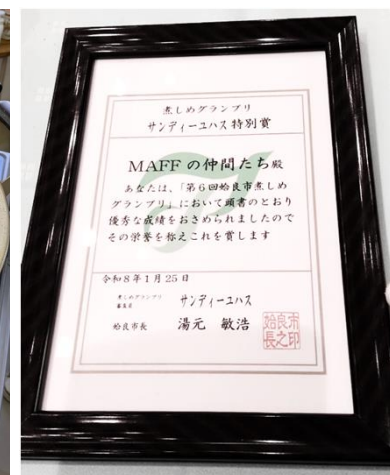 煮しめグランプリ
サンディーユハス特別賞
MAFFの仲間たち殿
あなたは、「第6回姶良市煮しめ
グランプリ」において頭書のとおり
優秀な成績をおさめられましたので
その栄誉を称えこれを賞します
令和8年1月25日
煮しめグランプリ
審査員 サンディーユハス
姶良市長 湯元 敏浩
姶良市
長之印